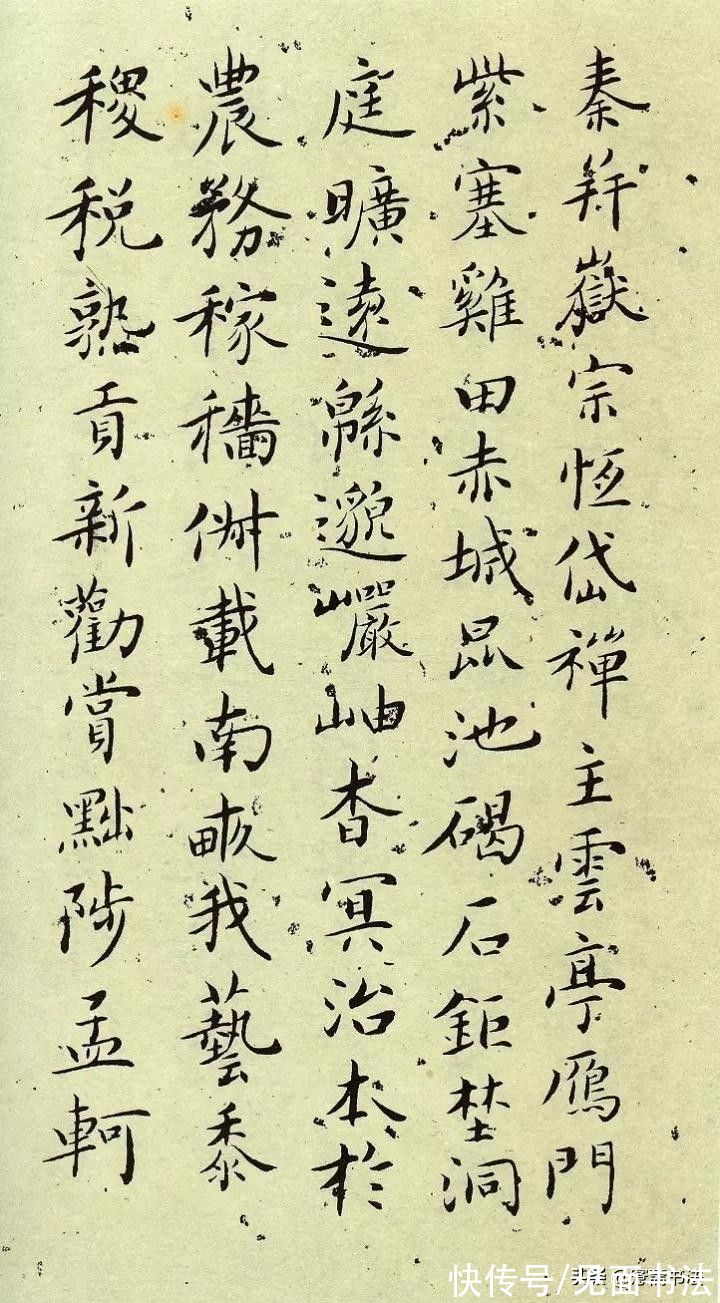 秦并嶽宗恆岱禪主雲亭鴈門
紫塞雞田赤城昆池碣石鉅埜洞
庭曠遠緜邈巖岫杳冥治本於
農務稼穡俶載南畝我藝黍
稷稅熟貢新勸賞黜陟孟軻
快传号/见面书法